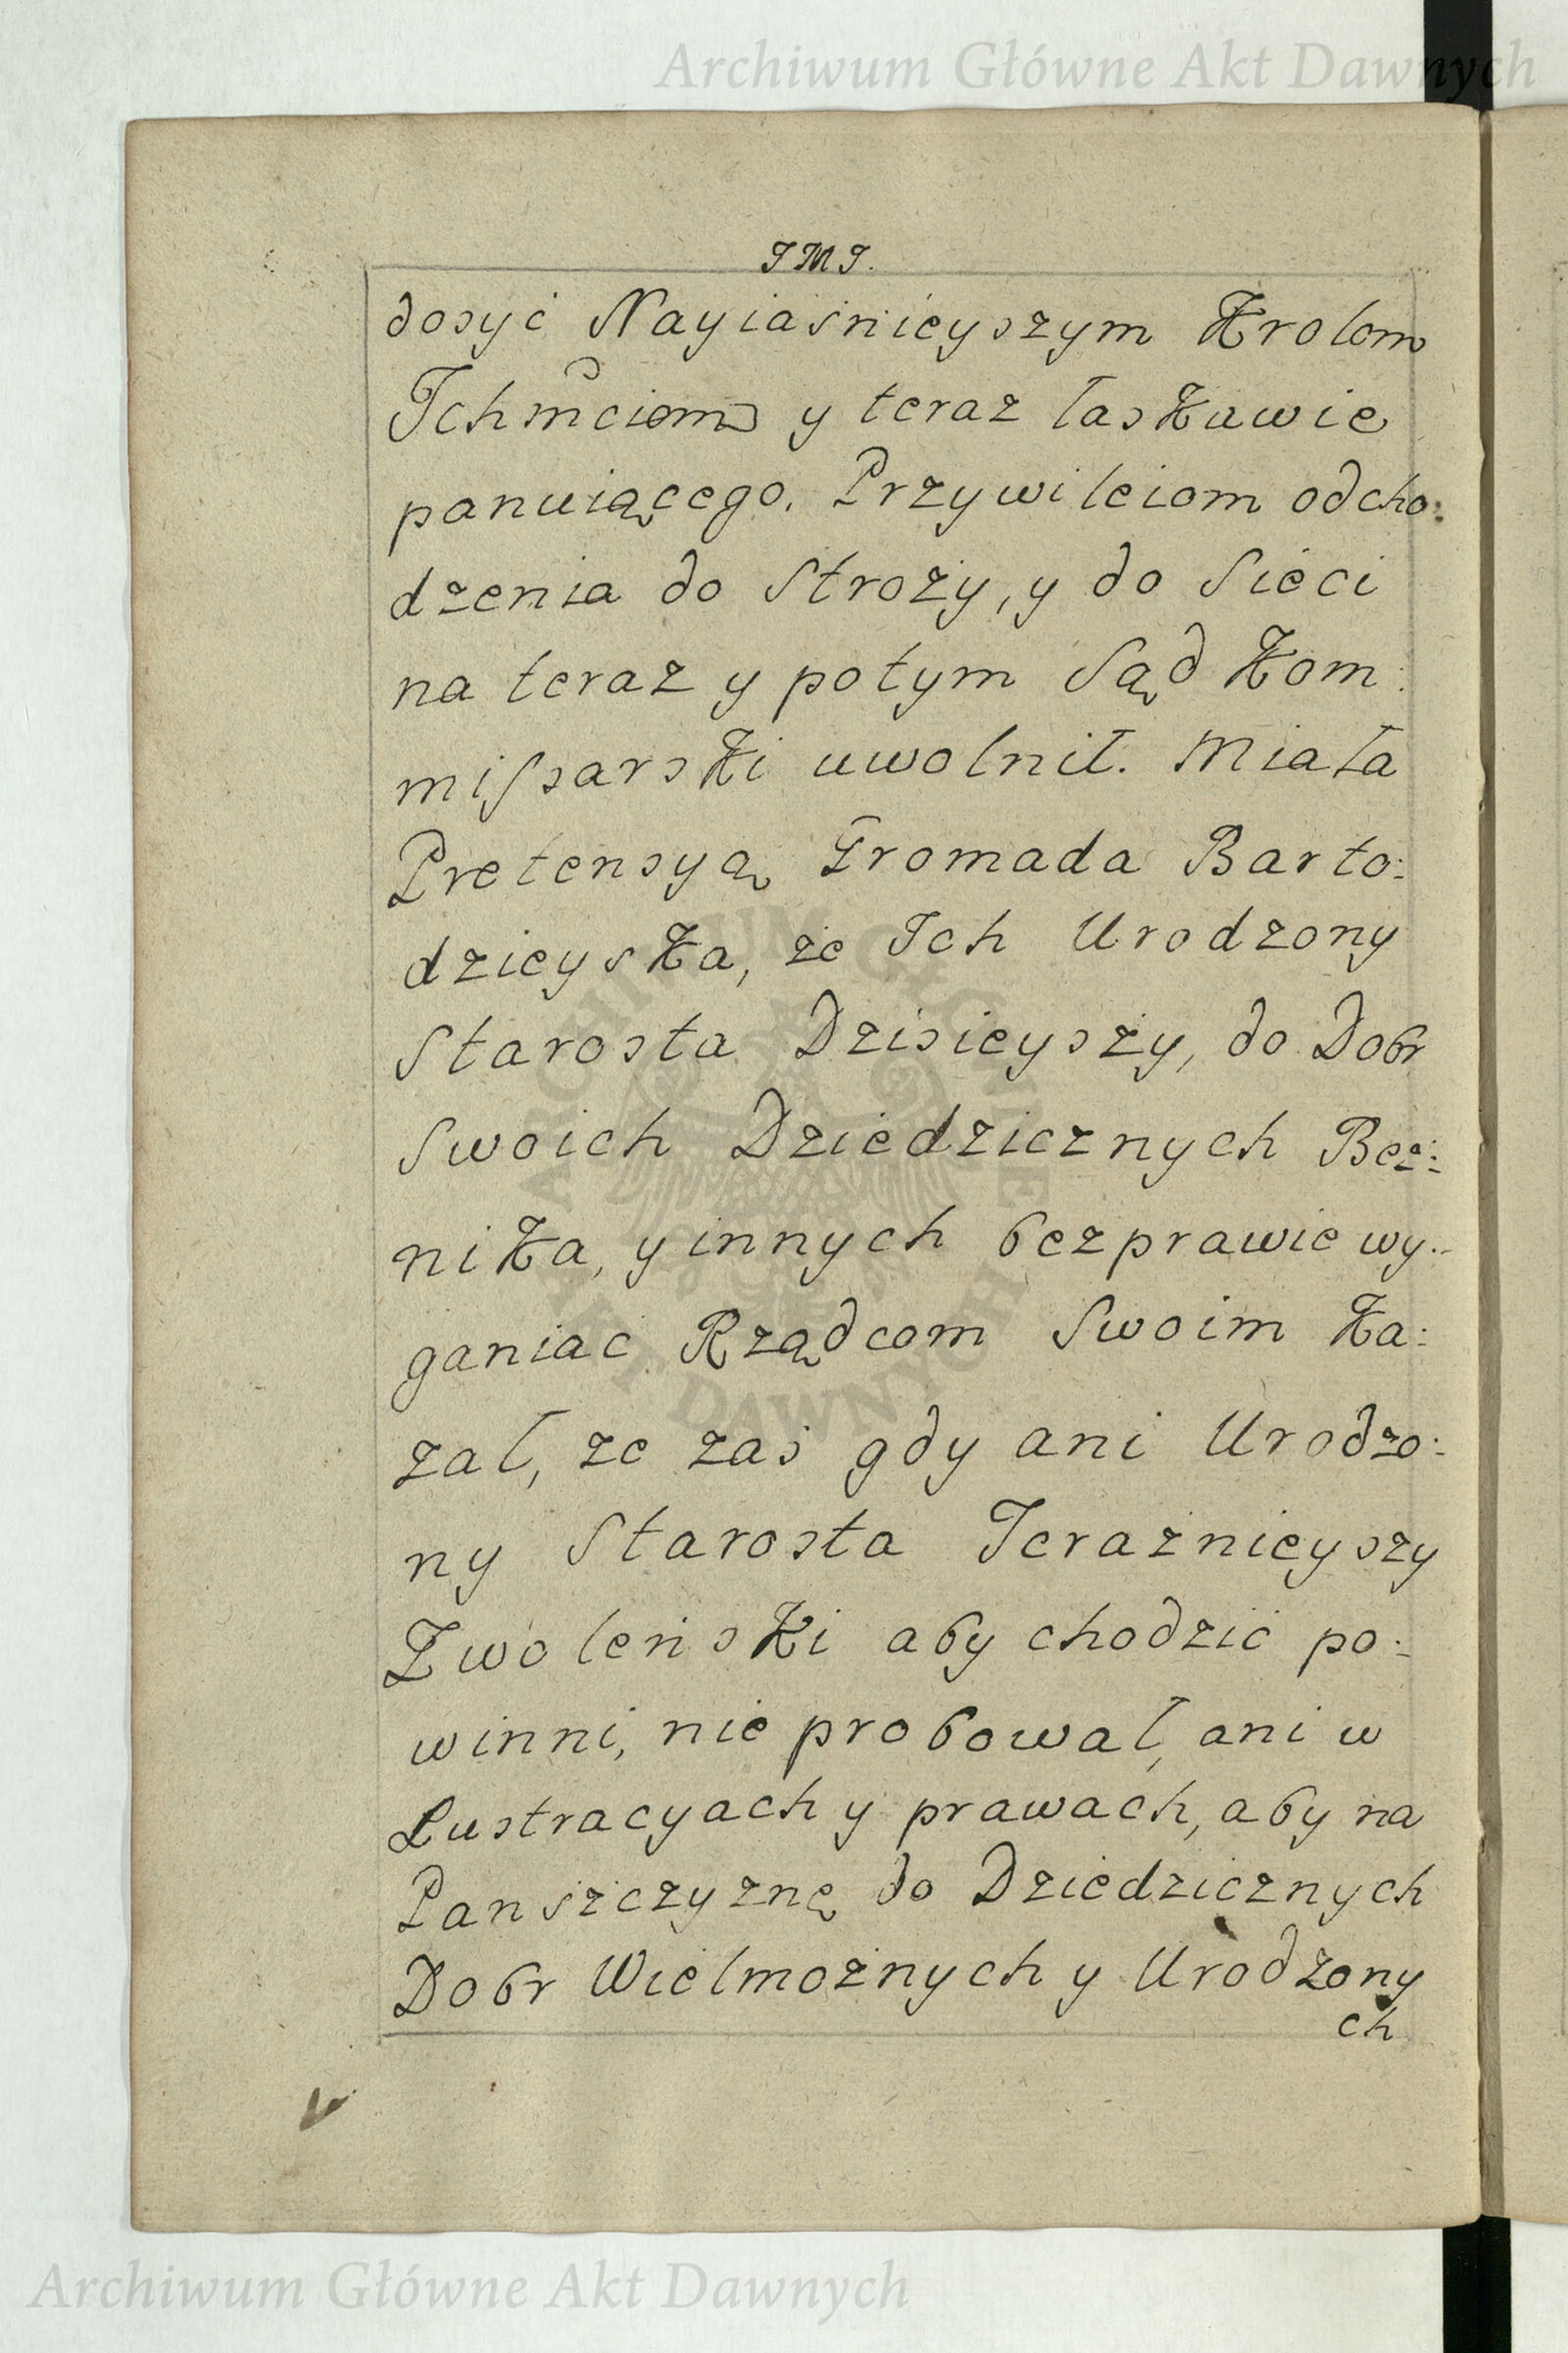 Archiwum Główne Akt Dawnych
JMJ.
dosyć Nayiaśnieyszym Krolom
Jchmciom y teraz łaskawie
panuiącego, Przywileiom odcho:
dzenia do Stroży, y do Sieci
na teraz y potym Sąd Kom:
missarski uwolnił. Miała
Pretensyą Gromada Barto:
dzieyska, że Jch Urodzony
Starosta Dzisieyszy, do Dobr
Swoich Dziedzicznych Bez:
nika, y innych bezprawie wy:
ganiać Rządcom Swoim Ka:
zał, że zaś gdy ani Urodzo:
ny Starosta Teraźnieyszy
Zwoleński aby chodzić po:
winni, nie probował, ani w
Lustracyach y prawach, aby na
Panszczyznę do Dziedzicznych
Dobr Wielmożnych y Urodzony
ch
ARCHIWUM GŁÓWNE AKT DAWNYCH
Archiwum Główne Akt Dawnych